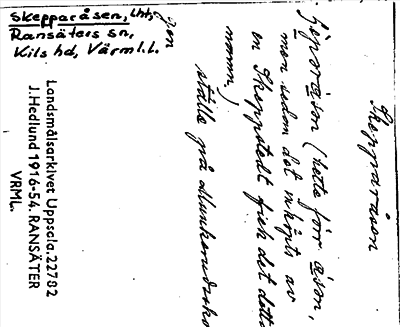 Skepparåsen, Lht,
Ransäters sn,
Kils hd, Värml. l.
Skepparåsen
(hette förr åsen,
men sedan det inköpts av
en Skeppstedt fick det detta
namn)
ställe på
Landsmålsarkivet Uppsala. 22782
J. Hedlund 1916-54. RANSÄTER
VRML.